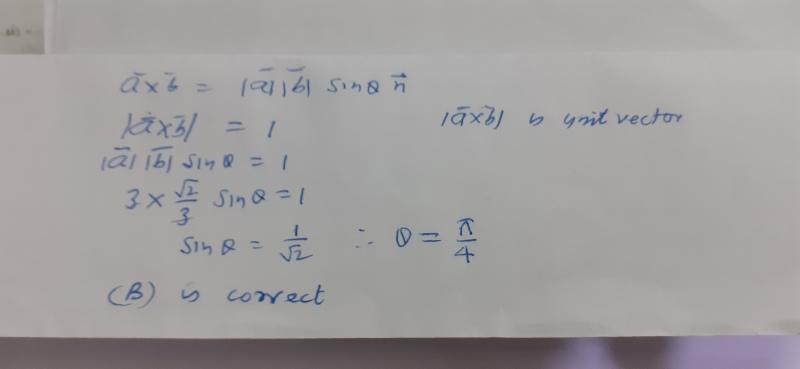 a̅ x b̅ = |a̅| |b̅| sinθ n⃗
|a̅ x b̅| = 1    |a̅ x b̅| is unit vector
|a̅| |b̅| sinθ = 1
3 × √2/3 sinθ = 1
sinθ = 1/√2 ∴ θ = π/4
(B) is correct